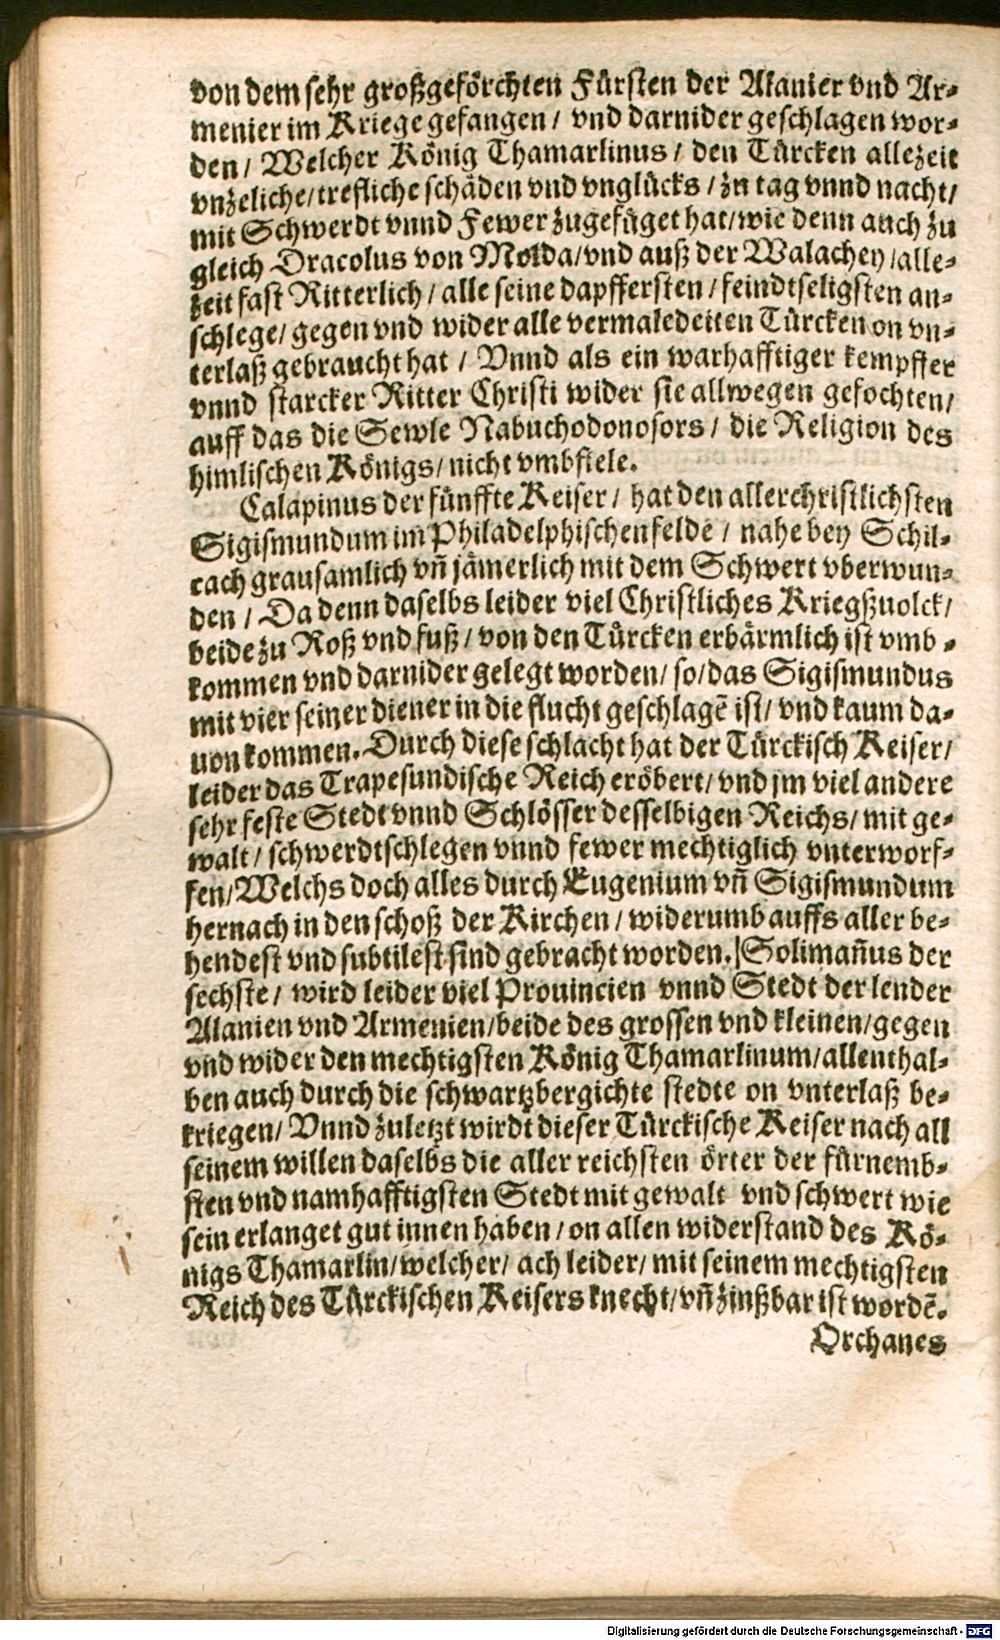 von dem sehr großgeförchten Fürsten der Alanier vnd Ar-
menier im Kriege gefangen / vnd darnider geschlagen wor-
den / Welcher König Thamarlinus / den Türcken allezeit
vnzeliche / trefliche schäden vnd vnglücks / zu tag vnnd nacht /
mit Schwerdt vnnd Fewer zugefüget hat / wie denn auch zu
gleich Dracolus von Molda / vnd auß der Walachey / alle-
zeit fast Ritterlich / alle seine dapffersten / feindtseligsten an-
schlege / gegen vnd wider alle vermaledeiten Türcken on vn-
terlaß gebraucht hat / Vnnd als ein warhafftiger kempffer
vnnd starcker Ritter Christi wider sie allwegen gefochten /
auff das die Sewle Nabuchodonosors / die Religion des
himlischen Königs / nicht vmbfiele.
Calapinus der fünffte Keiser / hat den allerchristlichsten
Sigismundum im Philadelphischenfelde / nahe bey Schil-
tach grausamlich vñ jämerlich mit dem Schwert vberwun-
den / Da denn daselbs leider viel Christliches Kriegßuolck /
beide zu Roß vnd fuß / von den Türcken erbärmlich ist vmb-
kommen vnd darnider gelegt worden / so / das Sigismundus
mit vier seiner diener in die flucht geschlagẽ ist / vnd kaum da-
uon kommen. Durch diese schlacht hat der Türckisch Keiser /
leider das Trapesundische Reich eröbert / vnd jm viel andere
sehr feste Stedt vnnd Schlösser desselbigen Reichs / mit ge-
walt / schwerdtschlegen vnnd fewer mechtiglich vnterworf-
fen / Welchs doch alles durch Eugenium vñ Sigismundum
hernach in den schoß der Kirchen / widerumb auffs aller be-
hendest vnd subtilest sind gebracht worden. Solimañus der
sechste / wird leider viel Prouincien vnnd Stedt der lender
Alanien vnd Armenien / beide des grossen vnd kleinen / gegen
vnd wider den mechtigsten König Thamarlinum / allenthal-
ben auch durch die schwartzbergichte stedte on vnterlaß be-
kriegen / Vnnd zuletzt wirdt dieser Türckische Keiser nach all
seinem willen daselbs die aller reichsten örter der fürnemb-
sten vnd namhafftigsten Stedt mit gewalt vnd schwert wie
sein erlanget gut innen haben / on allen widerstand des Kö-
nigs Thamarlin / welcher / ach leider / mit seinem mechtigsten
Reich des Türckischen Keisers knecht / vñ zinßbar ist wordẽ.
Orchanes
Digitalisierung gefördert durch die Deutsche Forschungsgemeinschaft - DFG